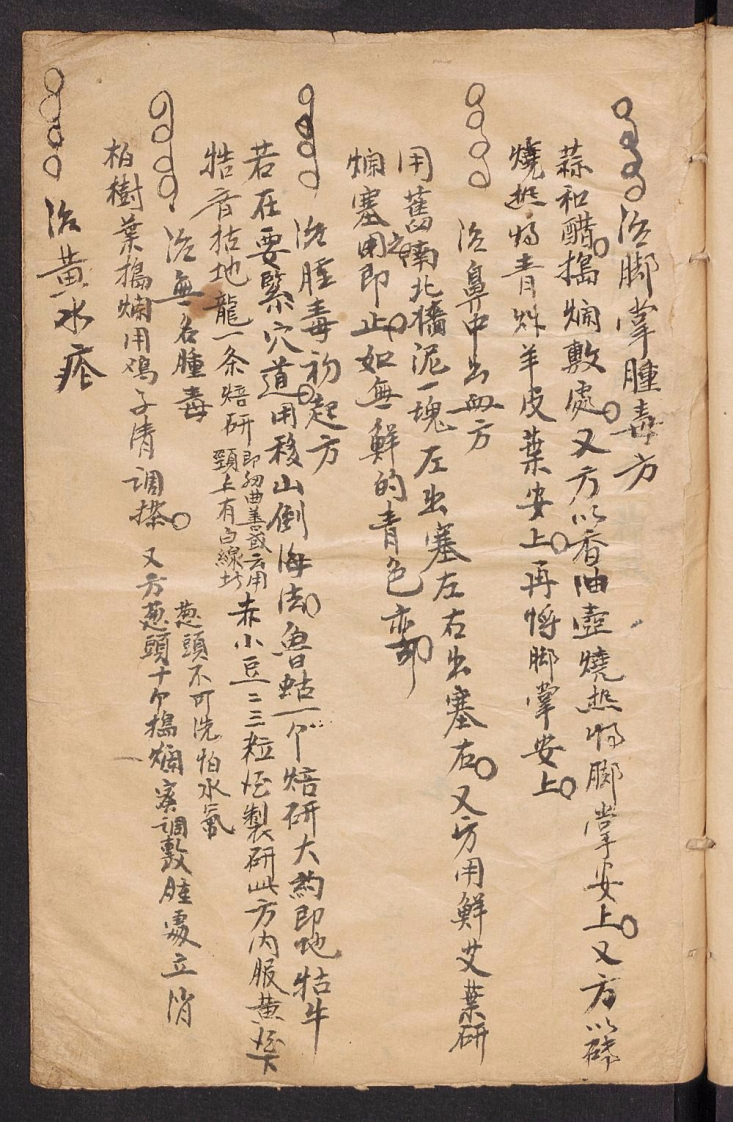 治脚掌腫毒方
蒜和醋搗爛敷處。又方以香油壺燒热将脚掌安上。又方以磚
燒热将青
羊皮葉安上。再将脚掌安上。
治鼻中出血方
用舊南北墻泥一塊左出塞左右出塞右。又方用鮮艾葉研
爛塞之即止。如無鮮的青色亦即
治腫毒初起方
若在要緊穴道用移山倒海法。魯蛄一个焙研大約即地牯牛
牯音拈地龍一条焙研
即蚓曲善或云用
頸上有白線
赤小豆二三粒製研此方内服黄下
治無名腫毒
柏樹葉搗爛用鸡子清調搽。又方葱頭十个搗爛蜜調敷腫處立消
葱頭不可洗怕水氣
治黄水疮